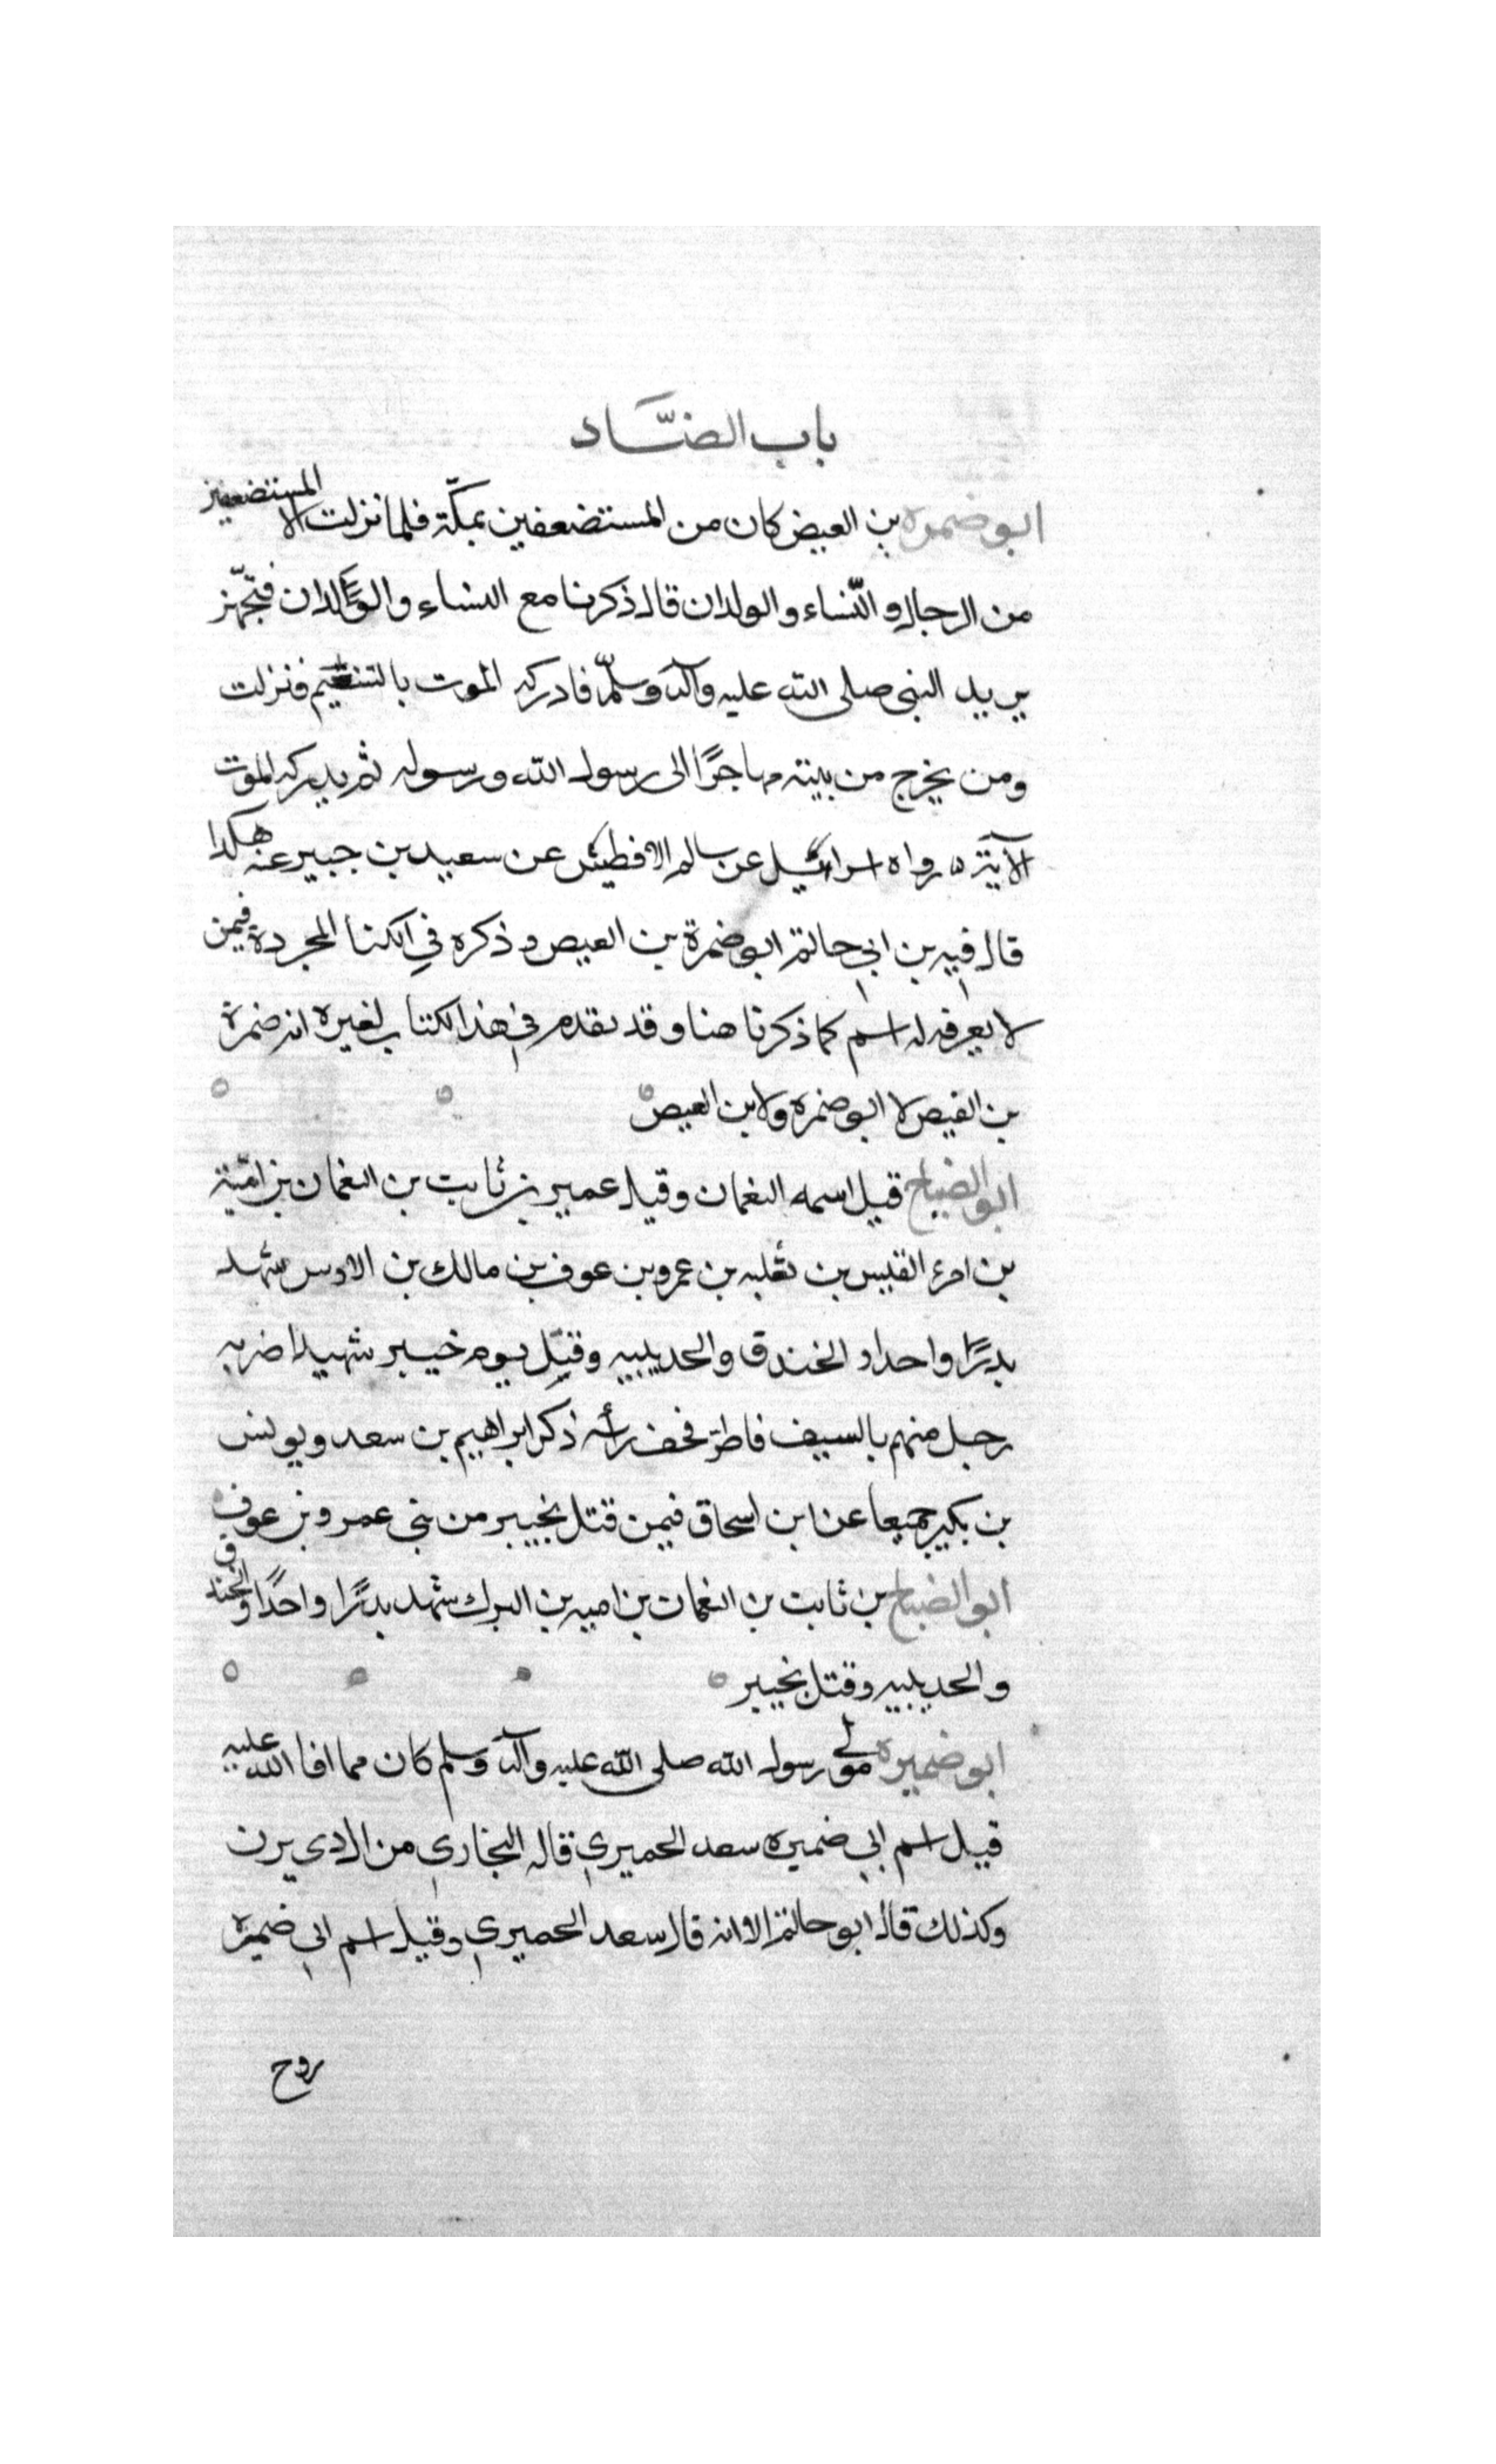 باب الضَّاد
ابو ضمره بن العيض كان من المستضعفين بمكّة فلما نزلت الا المستضعفين
من الرجال والنّساء والولدان قال ذكرنا مع النساء والولدان فتجهّز
يريد النبى صلى الله عليه وآله وسلّم فادركه الموت بالتنعيم فنزلت
ومن يخرج من بيته مهاجرًا الى رسول الله ورسوله ثم يدركه الموت
الآية ه رواه اسرائيل عن سالم الافطيش عن سعيد بن جبير عنه هكذا
قال فيه بن ابي حاتم ابو ضمرة بن العيص و ذكره في الكنا المجردة فيمن
لا يعرف له اسم كما ذكرنا هنا وقد تقدم في هذا الكتاب لغيره انه ضمرة
بن العيص لا ابو ضمره ولا بن العيص
ابو الضياح قيل اسمه النعمان وقيل عمير بن ثابت بن النعمان بن اميّة
بن امرء القيس بن ثعلبه بن عمرو بن عوف بن مالك بن الاوس شهد
بدرًا واحدا و الخندق والحديبيه وقتِل يوم خيبر شهيدا ضربه
رجل منهم بالسيف فاطن قحف رأسه ذكر ابراهيم بن سعد ويونس
بن بكير جميعا عن ابن اسحاق فيمن قتل بخيبر من بني عمرو بن عوف
ابو الضياح بن ثابت بن النعمان بن اميه بن البرك شهد بدرًا واحدًا والخندق
والحديبيه وقتل بخيبر
ابو ضميره مولى رسول الله صلى الله عليه وآله وسلم كان مما افا الله عليه
قيل اسم ابي ضميره سعد الحميري قاله البخاري من ال ذى يزن
وكذلك قال ابو حاتم الا انه قال سعد الحميري وقيل اسم ابي ضميره
روح